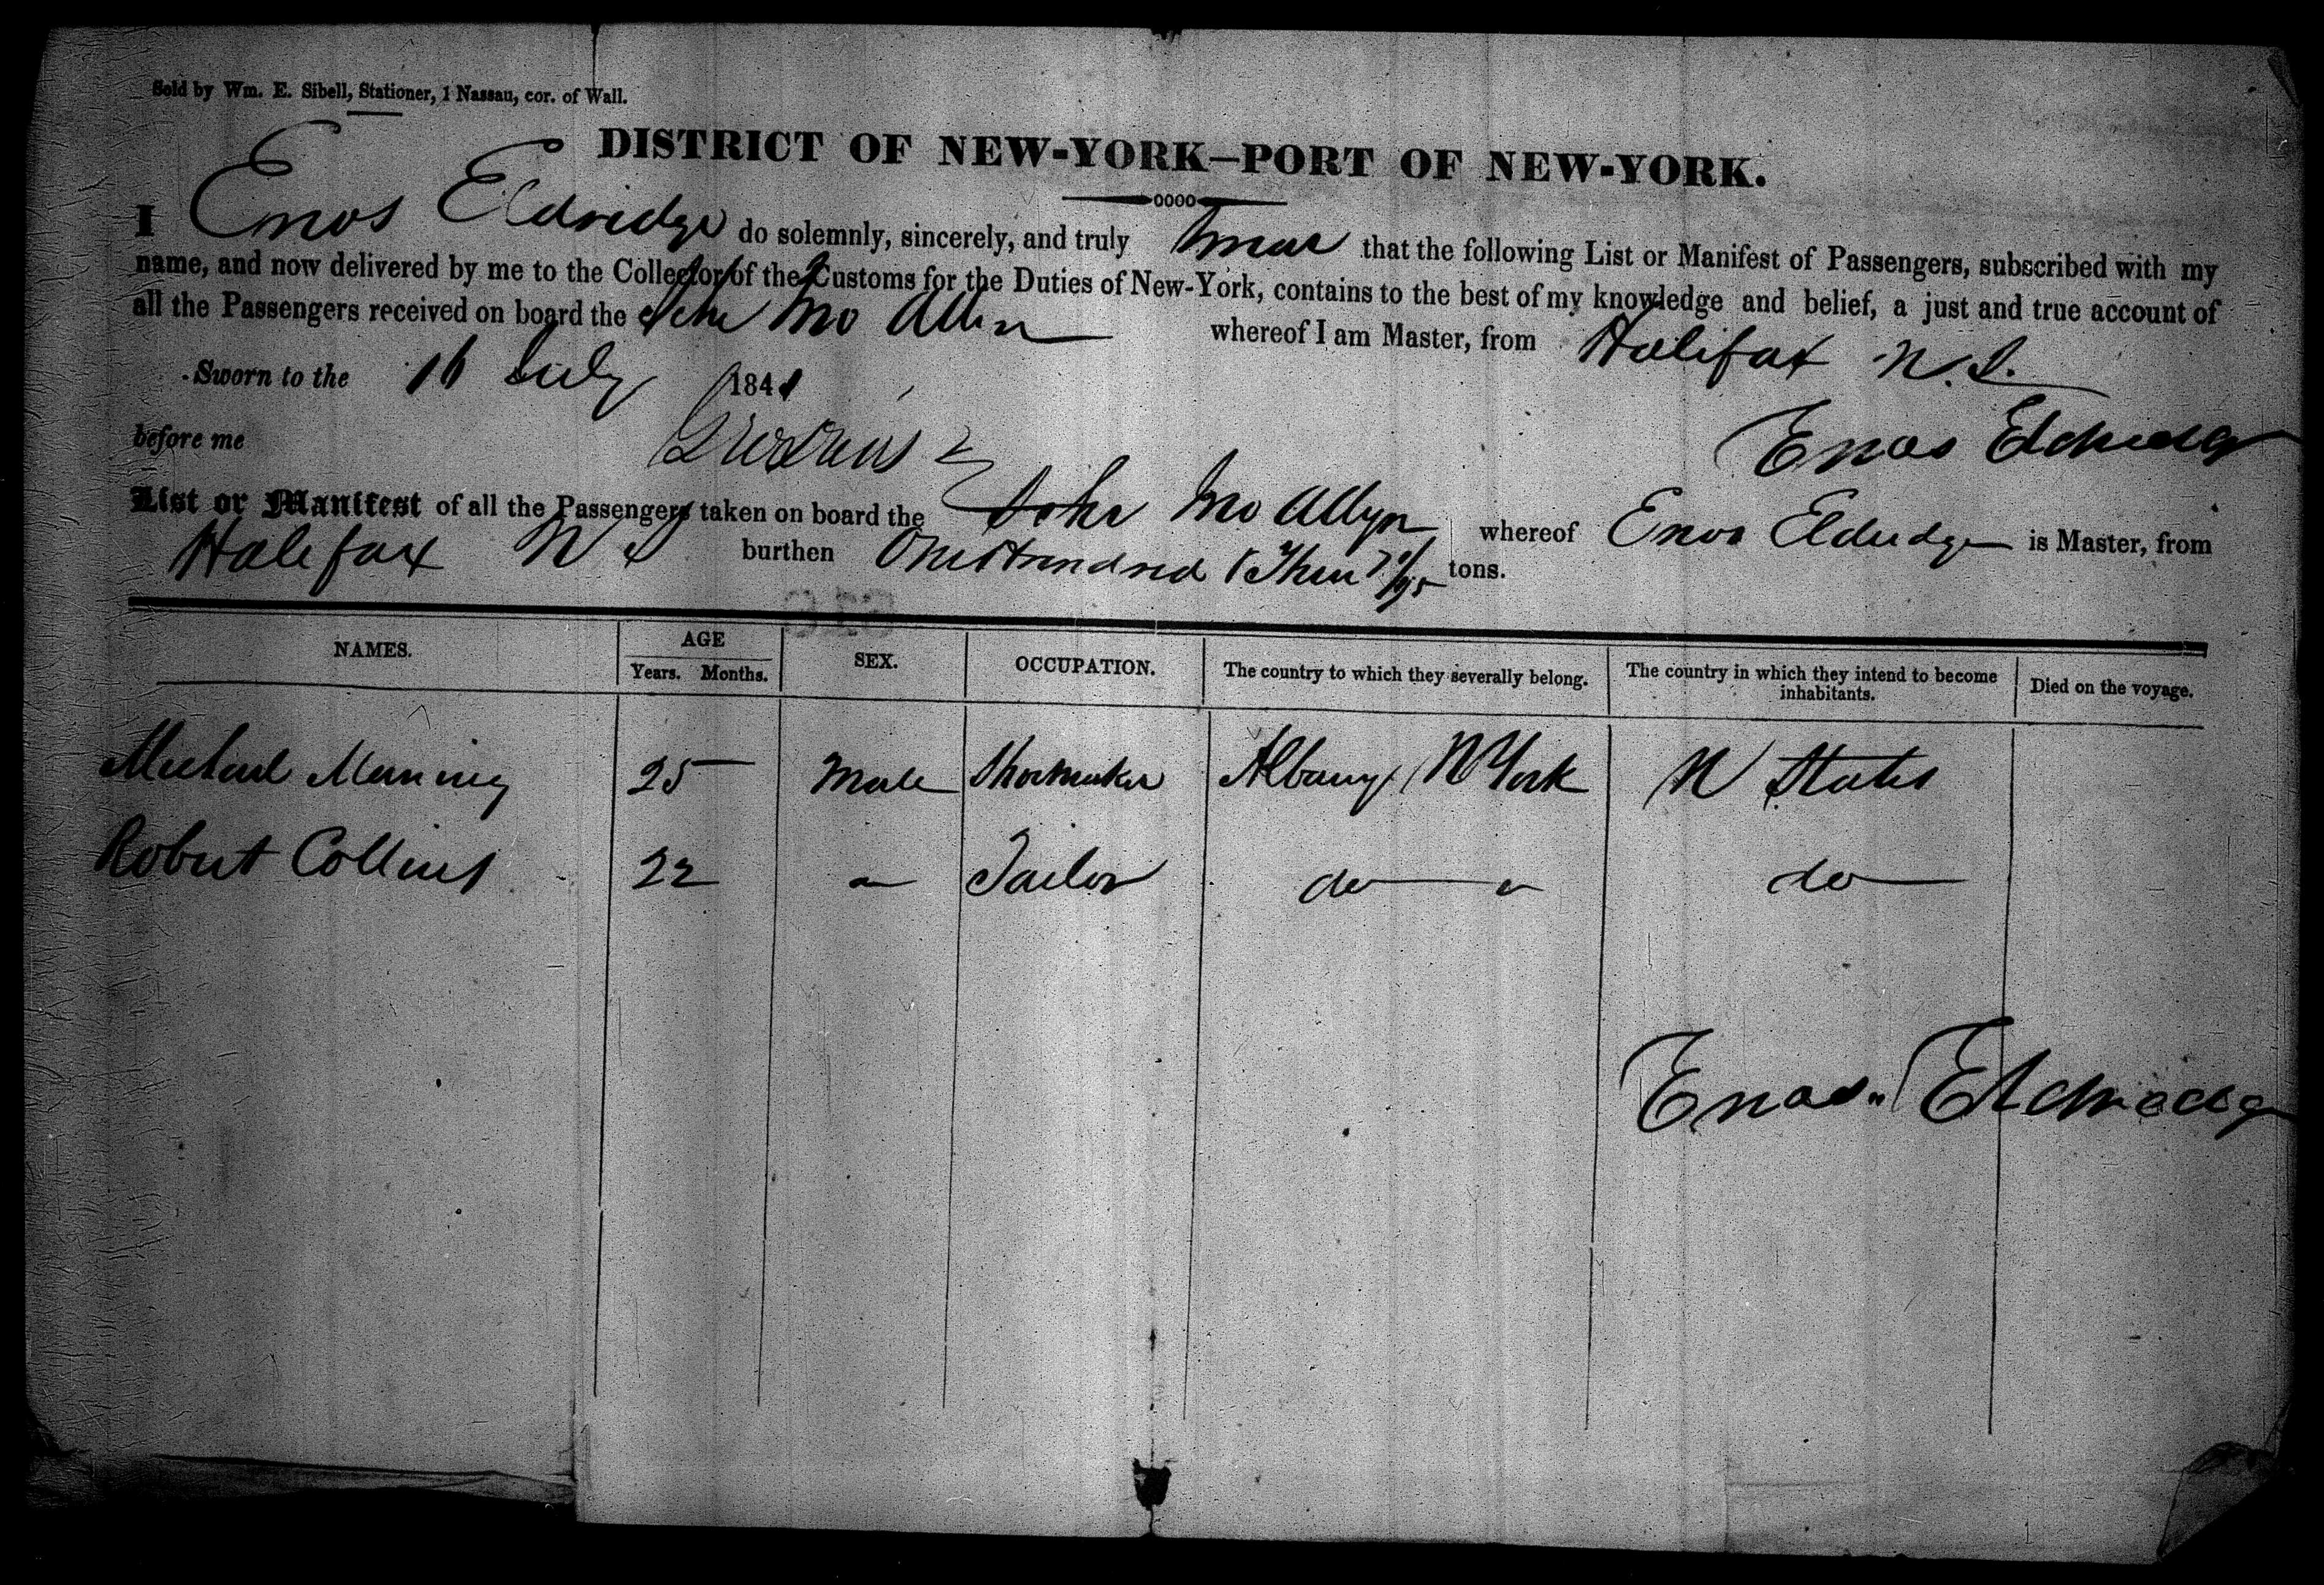 Sold by Wm. E. Sibell, Stationer, 1 Nassau, cor. of Wall.
DISTRICT OF NEW-YORK—PORT OF NEW-YORK.
I Enos Eldridge do solemnly, sincerely, and truly swear that the following List or Manifest of Passengers, subscribed with my
name, and now delivered by me to the Collector of the Customs for the Duties of New-York, contains to the best of my knowledge and belief, a just and true account of
all the Passengers received on board the Schr Allen whereof I am Master, from Halifax N.S.
Sworn to the 16 July 1841
before me
Enos Eldredg
List or Manifest of all the Passengers taken on board the Schr Allyn whereof Enos Eldredge is Master, from
Halifax N S burthen One Hundred & Three /95 tons.
NAMES. AGE Years. Months. SEX. OCCUPATION. The country to which they severally belong. The country in which they intend to become inhabitants. Died on the voyage.
Michael Manning 25 Male Shoemaker Albany N York U States
Robert Collins 22 " Tailor do " do
Enos Eldredg